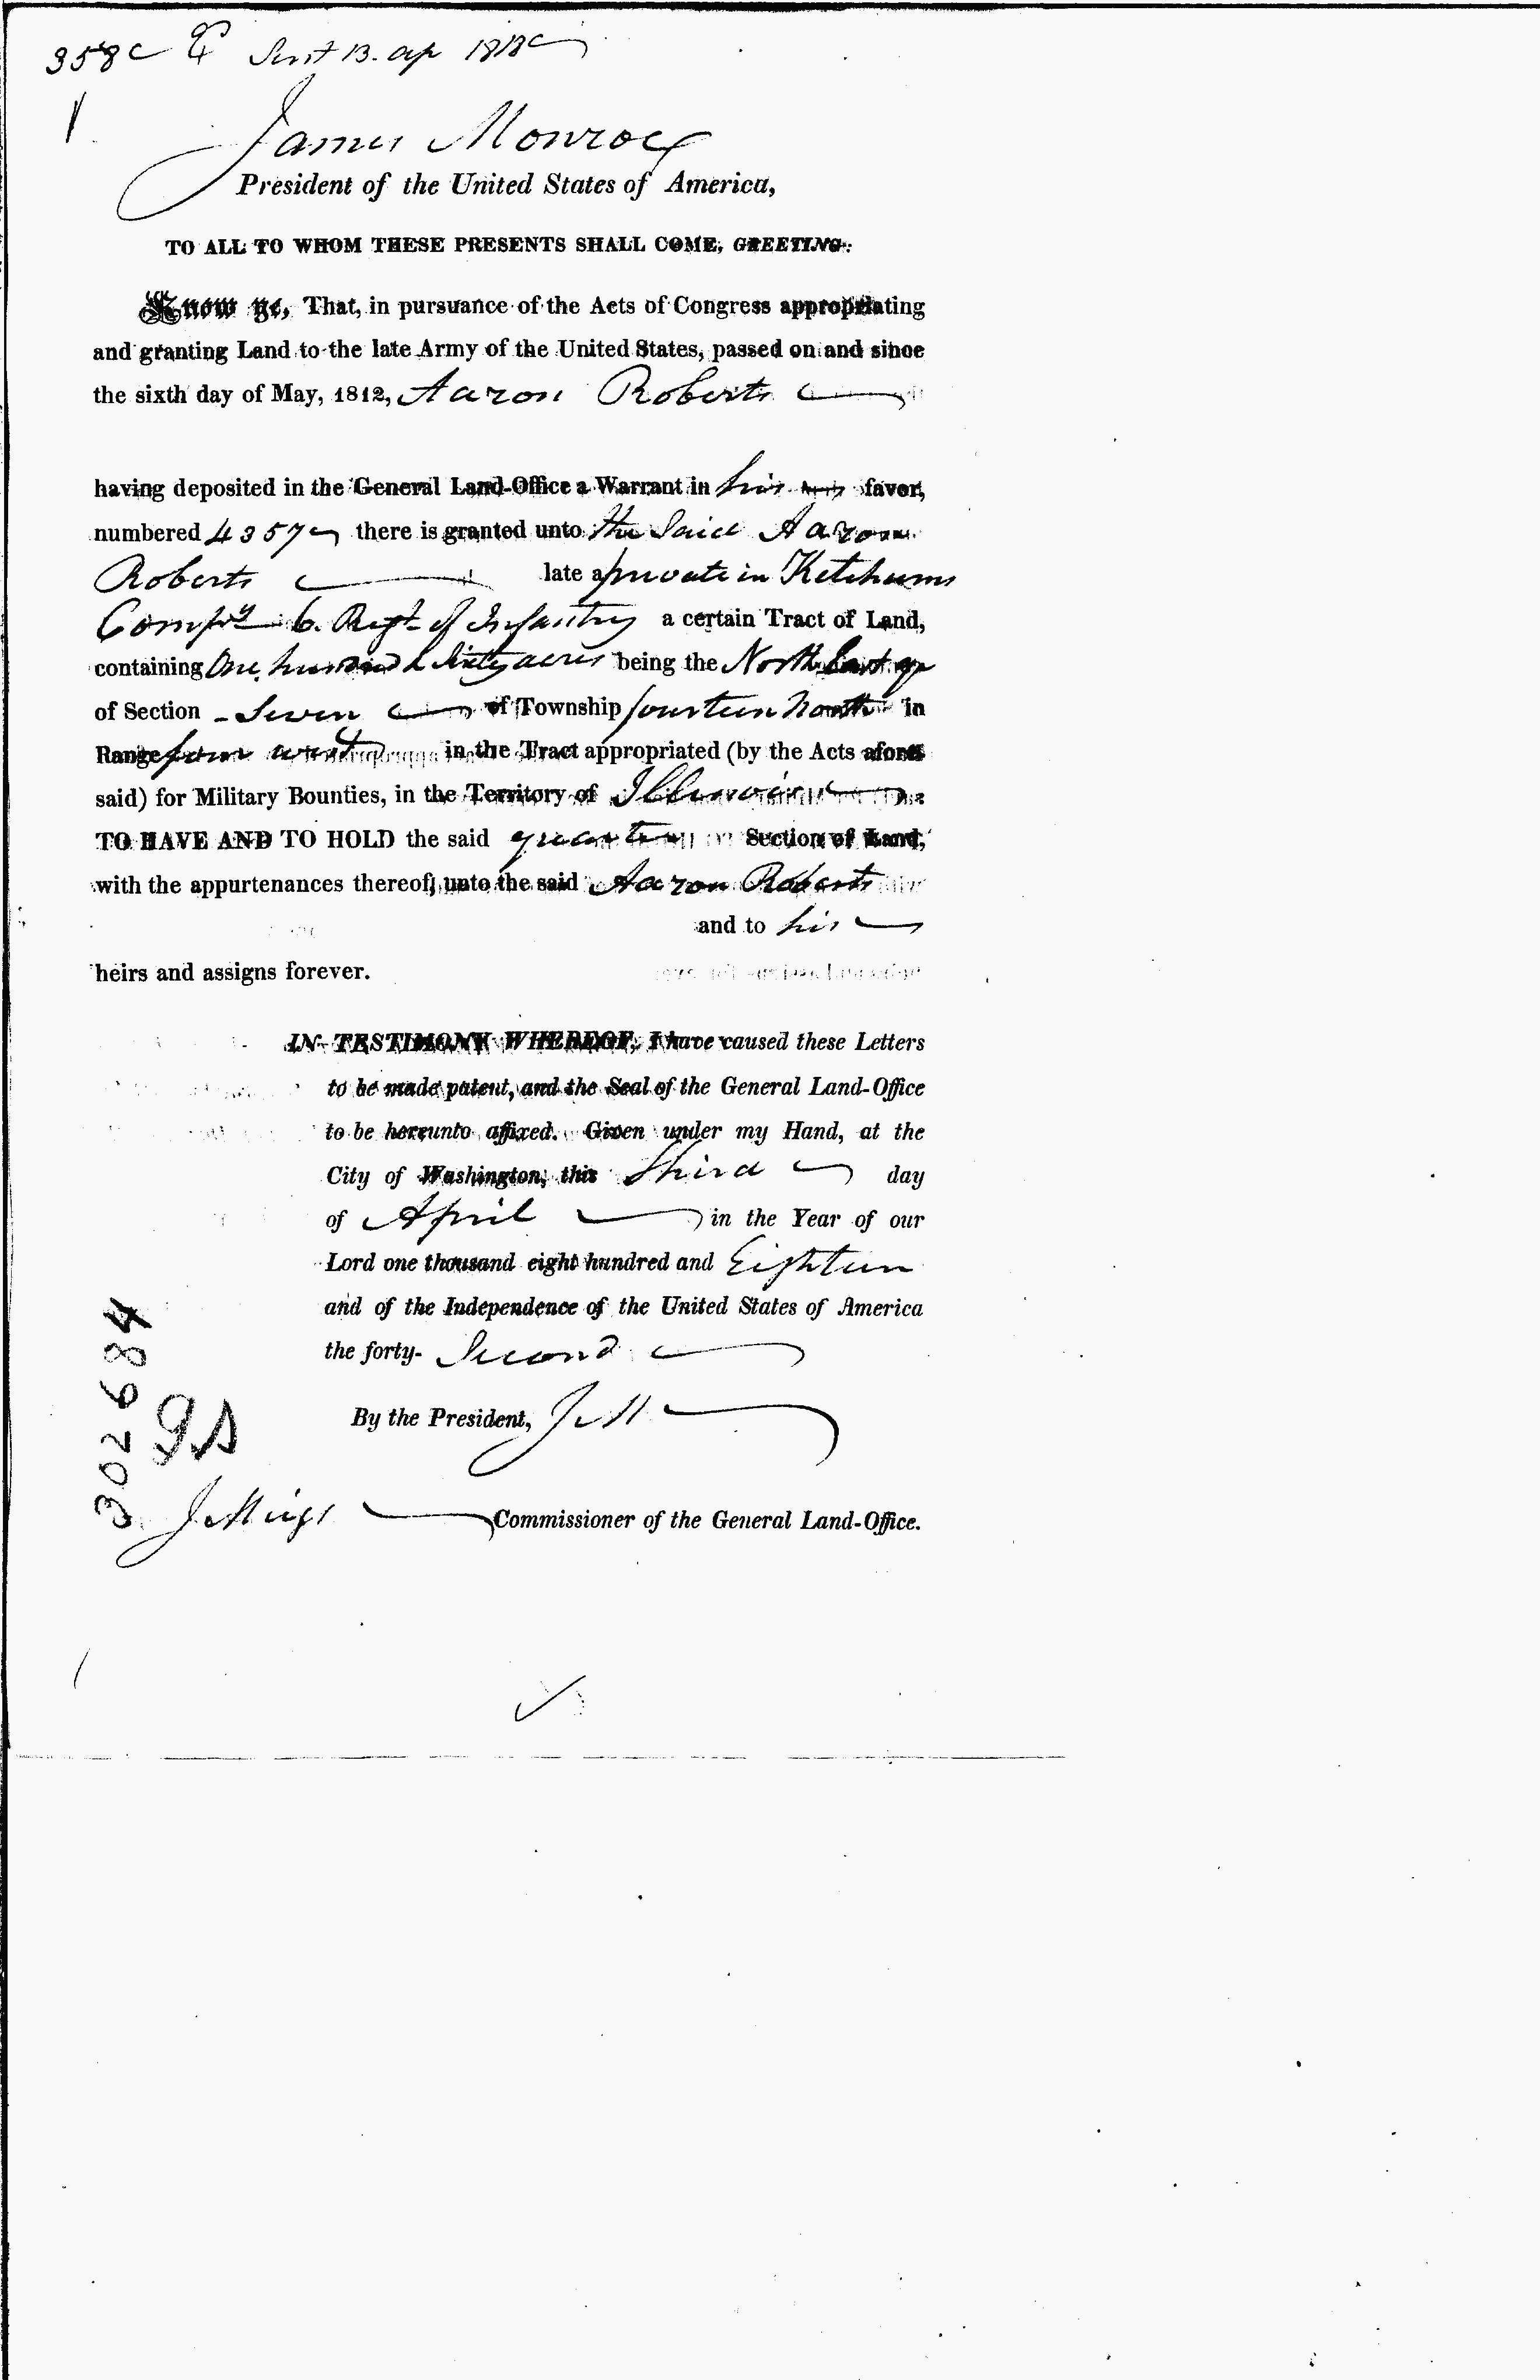 358 Sent 13. ap 1818
James Monroe
President of the United States of America,
TO ALL TO WHOM THESE PRESENTS SHALL COME, GREETING:
Know ye, That, in pursuance of the Acts of Congress appropriating
and granting Land to the late Army of the United States, passed on and since
the sixth day of May, 1812, Aaron Roberts
having deposited in the General Land-Office a Warrant in his favor,
numbered 4357 there is granted unto the said Aaron
Roberts late a private in Ketchums
Compy 6. Regt. of Infantry a certain Tract of Land,
containing One hundred & Sixty acres being the North East qr
of Section Seven of Township fourteen North in
Range four west in the Tract appropriated (by the Acts afore-
said) for Military Bounties, in the Territory of Illinois
TO HAVE AND TO HOLD the said quarter Section of Land,
with the appurtenances thereof, unto the said Aaron Roberts
and to his
heirs and assigns forever.
IN TESTIMONY WHEREOF, I have caused these Letters
to be made patent, and the Seal of the General Land-Office
to be hereunto affixed. Given under my Hand, at the
City of Washington, this third day
of April in the Year of our
Lord one thousand eight hundred and Eighteen
and of the Independence of the United States of America
the forty- Second
By the President, J M
J Meigs Commissioner of the General Land-Office.
302684